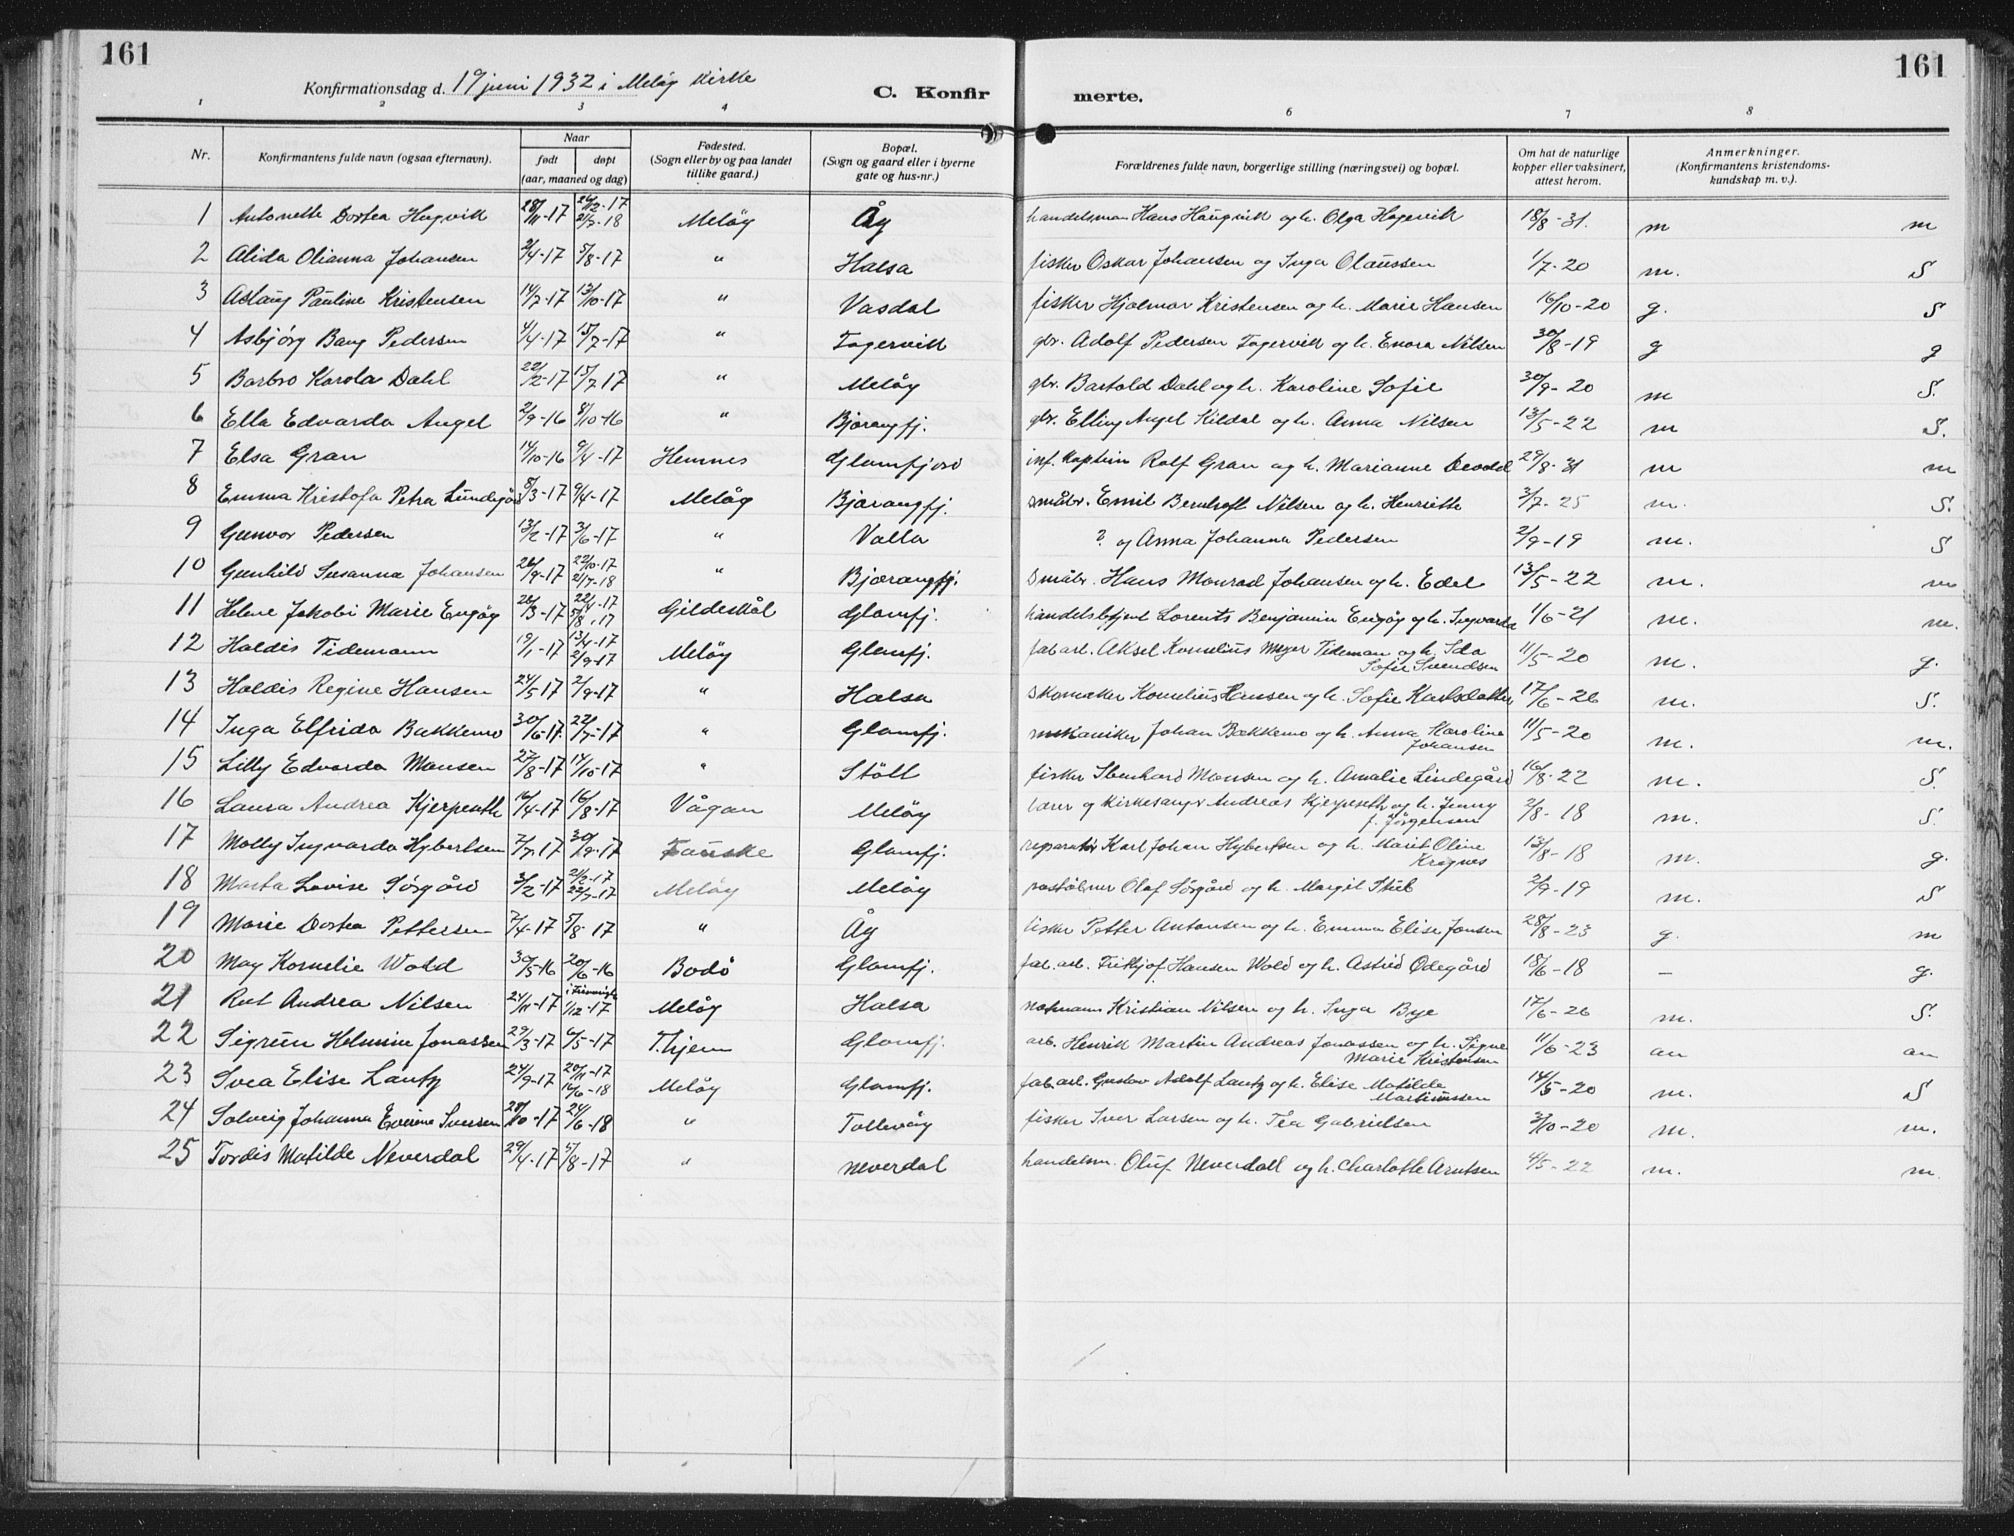 161
161
Konfirmationsdag d. 19 juni 1932 i Meløy kirke
C. Konfir merte.
1 2 3 4 6 7 8
Nr.
Konfirmantens fulde navn (ogsaa efternavn).
Naar
født døpt
(aar, maaned og dag)
Fødested.
(Sogn eller by og paa landet
tillike gaard.)
Bopæl.
(Sogn og gaard eller i byerne
gate og hus-nr.)
Forældrenes fulde navn, borgerlige stilling (næringsvei) og bopæl.
Om hat de naturlige
kopper eller vaksinert,
attest herom.
Anmerkninger.
(Konfirmantens kristendoms-
kundskap m. v.).
1 Antonette Dortea Hagvik 28/11-17 26/12-17 2/7-18 Meløy Åg handelsman Hans Haugvik og h. Olga Hagevik 18/8-31. m m
2 Alida Olianna Johansen 2/4-17 5/8-17 " Halsa fisker Oskar Johansen og Inga Olaussen 1/7-20 m. S
3 Aslaug Pauline Kristensen 14/7-17 13/10-17 " Vasdal fisker Hjalmar Kristensen og h. Marie Hansen 16/10-20 g. S
4 Asbjørg Bang Pedersen 4/4-17 15/7-17 " Fagervik gbr. Adolf Pedersen Fagervik og h. Enora Nilsen 30/8-19 g g
5 Barbro Karola Dahl 22/2-17 15/7 17 " Meløy gbr. Bartold Dahl og h. Karoline Sofie 30/9-20 m S.
6 Ella Edvarda Angel 2/9-16 8/10-16 " Bjærangfj. gbr. Elling Angel Kildal og h. Anna Nilsen 13/5-22 m S.
7 Elsa Gran 14/10-16 9/4-17 Hemnes Glomfjord inf. kaptein Rolf Gran og h. Marianne 29/8-31 m m
8 Emma Kristofa Petra Lundegård 8/3-17 9/4-17 Meløy Bjærangfj. småbr. Emil Bernhoft Nilsen og h. Henriette 3/7-25 m. S.
9 Gunvor Pedersen 13/2-17 3/6-17 " Valla ? og Anna Johanna Pedersen 2/9-19 m. S
10 Gunhild Susanna Johansen 26/9-17 22/10-17 2/7-18 " Bjærangfj. småbr. Hans Monrad Johansen og h. Edel 13/5-22 m. m
11 Helene Jakobi Marie Engøy 26/3-17 22/4-17 5/8,17 Gildeskål Glomfj. handelsbetjent Lorents Benjamin Engøy og h. Ingvarda 1/6-21 m. m.
12 Haldis Tidemann 19/1-17 13/4-17 2/9-17 Meløy Glomfj. fab.arb. Aksel Kornelius Meyer Tideman og h. Ida
Sofie Svendsen 11/5-20 m. g.
13 Haldis Regine Hansen 24/5 17 2/9-17 " Halsa skomaker Kornelius Hansen og h. Sofie Karlsdatter 17/6-26 m. S.
14 Inga Elfrida Bakkemo 30/6-17. 22/7-17 " Glomfj. mekaniker Johan Bakkemo og h. Anna Karoline
Johansen 11/5-20 m. m.
15 Lilly Edvarda Monsen 27/8-17 14/10-17 " Støtt fisker Ibenhard Monsen og h. Amalie Lindegård 16/8-22 m. S.
16 Laura Andrea Kjerpeseth 16/4-17 16/8-17 Vågan Meløy lærer og kirkesangr Andreas Kjerpeseth og h. Jenny
f. Jørgensen 2/8-18 m. S.
17 Molly Ingvarda Hybertsen 7/7-17 30/9-17 Fauske Glomfj. reparatør Karl Johan Hybertsen og h. Marit Oline
Kragnes 13/8-18 m. g.
18 Marta Lovise Sørgård 3/2-17 2/2-17 22/7-17 Meløy Meløy Olaf Sørgård og h. Margit 2/9-19 m. S
19 Marie Dortea Pettersen 7/4-17 5/8-17 " Åg fisker Petter Antonsen og h. Emma Elise Jonsen 28/8-23 g. m
20 May Kornelie Wold 30/5-16 20/6-16 Bodø Glomfj. fab. arb. Fritjof Hansen Wold og h. Astrid Ødegård 18/6-18 – g.
21 Rut Andrea Nilsen 24/11-17 1/12-17 Meløy Halsa Kristian Nilsen og h. Inga Bye 17/6-26 m. S.
22 Sigrun Helmine Jonassen 29/3-17 6/5-17 T.hjem Glomfj. arb. Henrik Martin Andreas Jonassen og h. Signe
Marie Kristensen 11/6-23 an an
23 Svea Elise Lantz 24/9-17 20/11-17 16/6-18 Meløy Glomfj. fab arb. Gustav Adolf Lantz og h. Elise Matilde
Martinussen 14/5-20 m. S
24 Solveig Johanna Iversen 28/10-17 24/6-18 " Tollevåg fisker Iver Larsen og h. Tea Gabrielsen 3/10-20 m. m.
25 Tordis Matilde Neverdal 29/4-17 5/8-17 " Neverdal handelsm. Oluf Neverdall og h. Charlotte Arntsen 4/5-22 m. m.